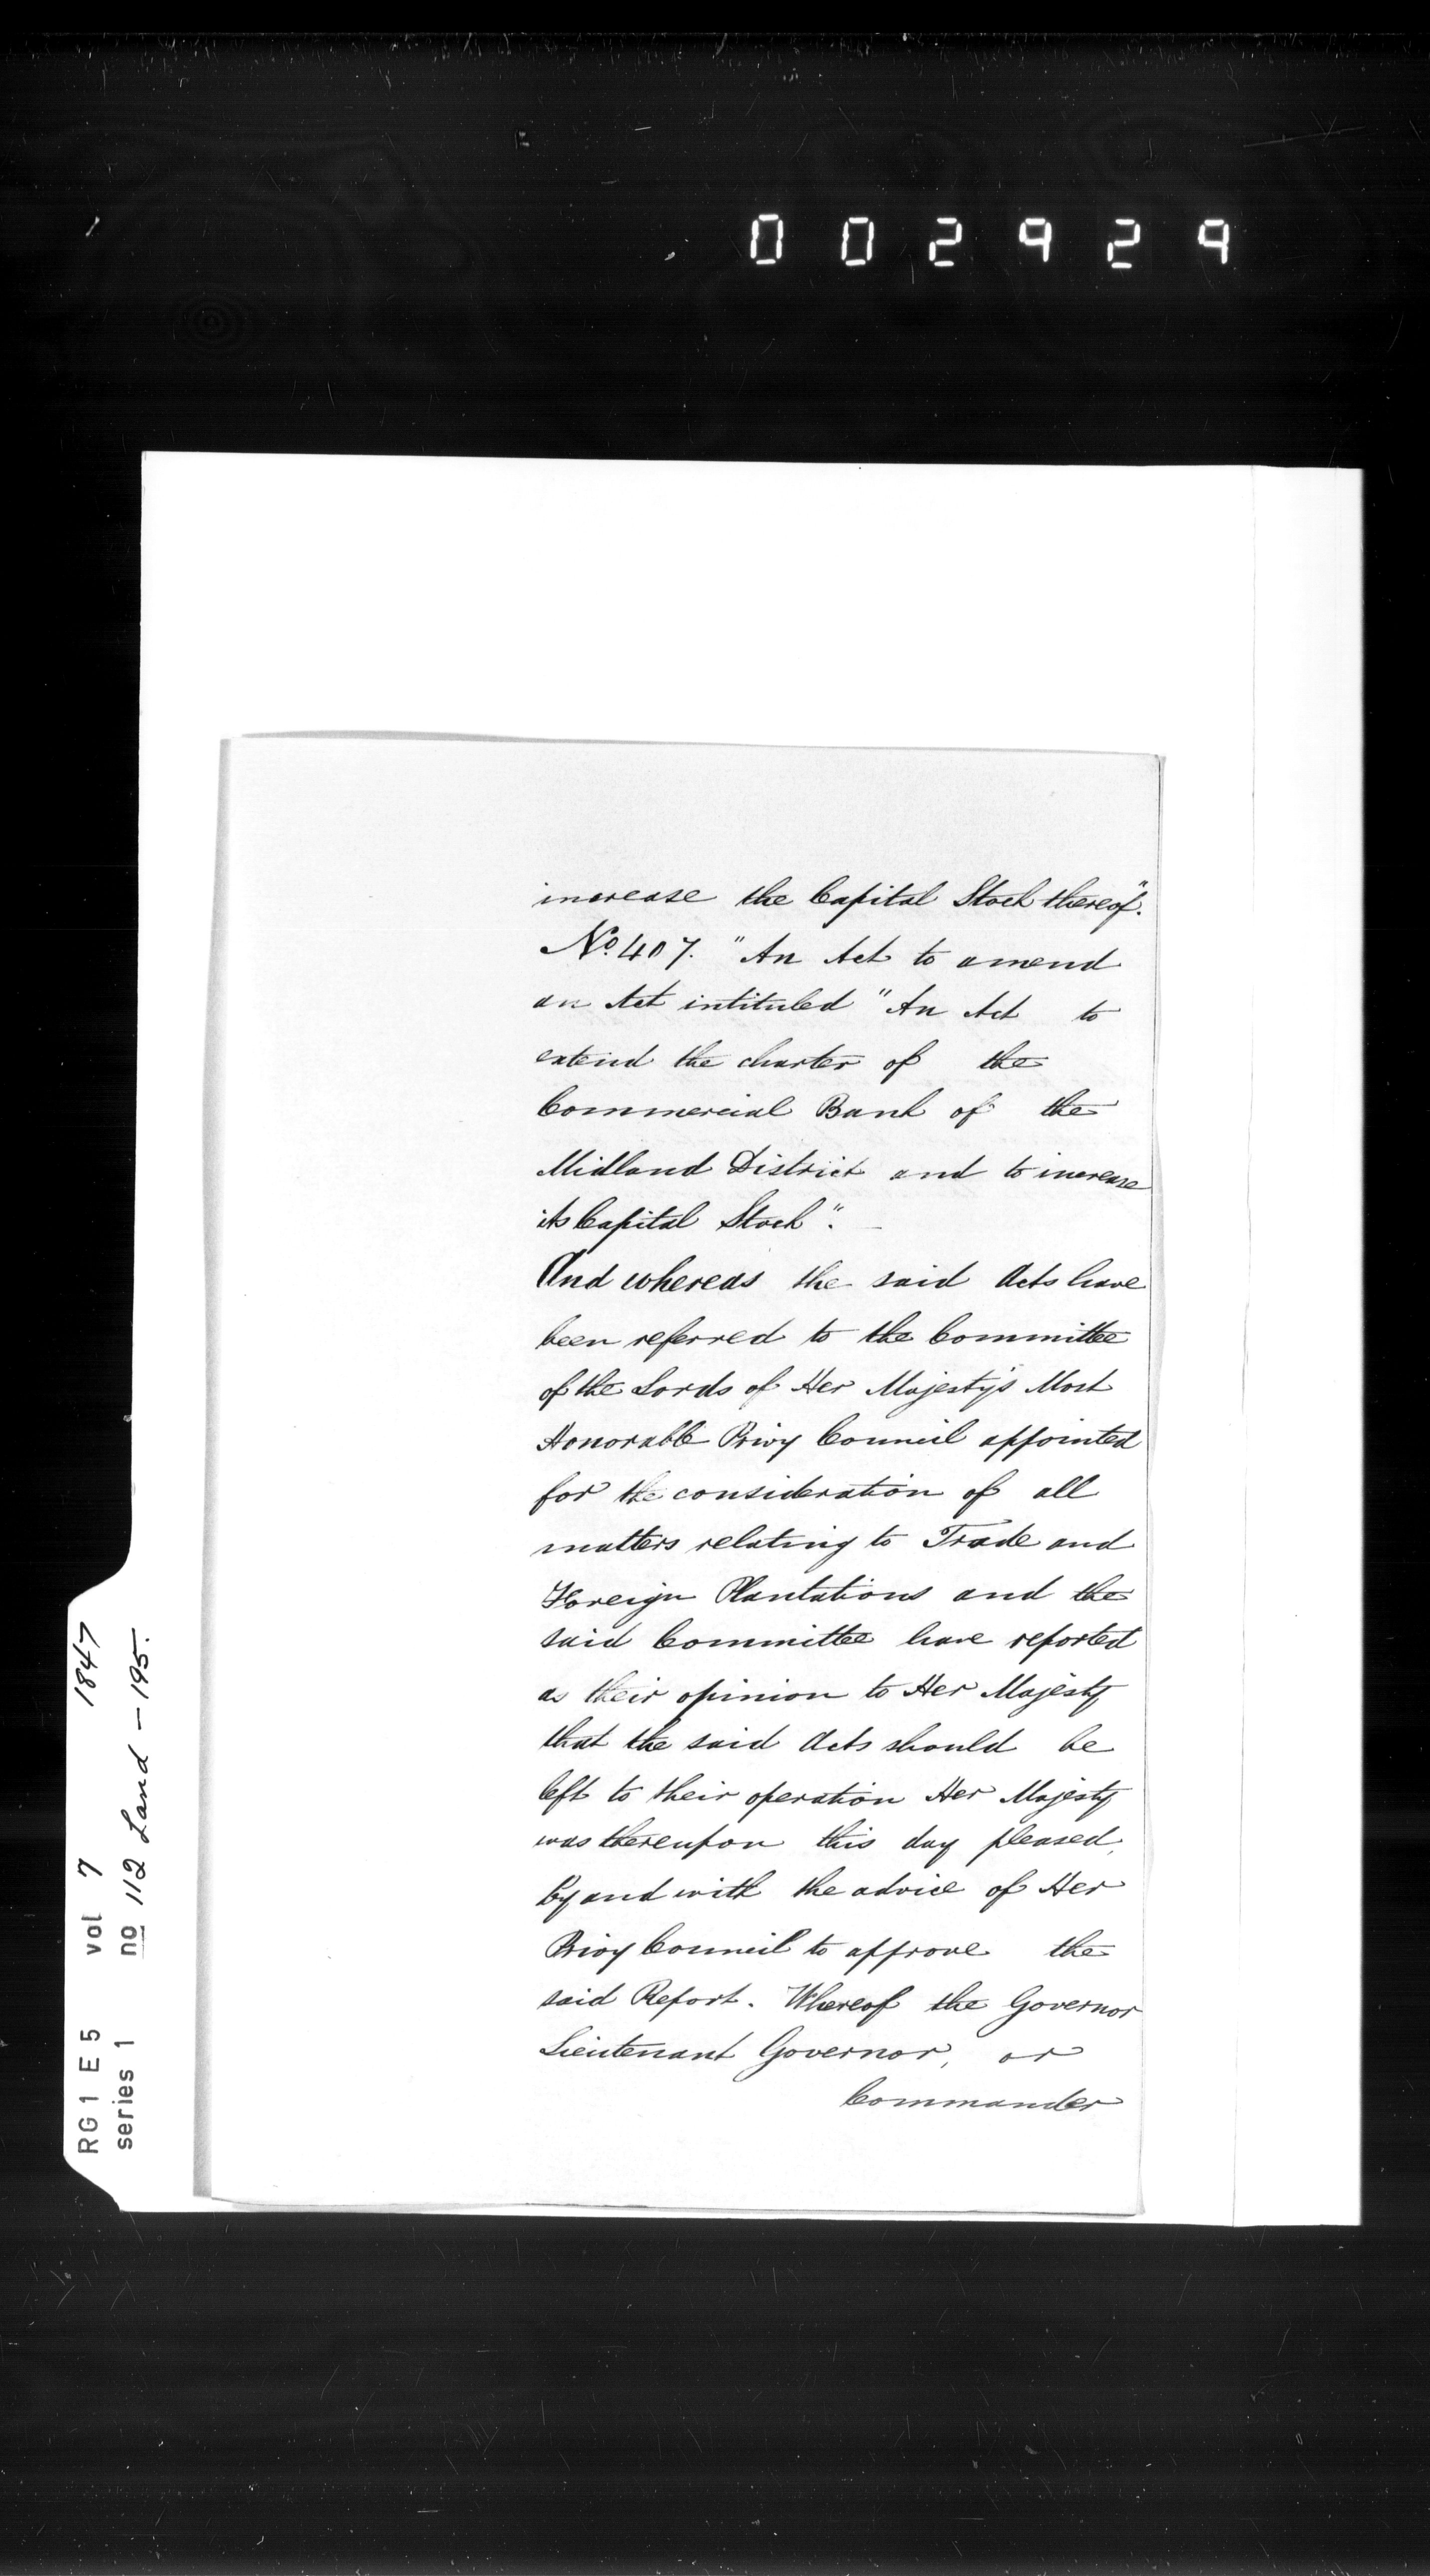 002929
increase the Capital Stock thereof".
No. 407. "An Act to amend
an Act intituled "An Act to
extend the charter of the
Commercial Bank of the
Midland District and to increase
its Capital Stock".
And whereas the said Acts have
been referred to the Committee
of the Lords of Her Majesty's Most
Honorable Privy Council appointed
for the consideration of all
matters relating to Trade and
Foreign Plantations and the
said Committee have reported
as their opinion to Her Majesty
that the said Acts should be
left to their operation Her Majesty
was thereupon this day pleased,
by and with the advice of Her
Privy Council to approve the
said Report. Whereof the Governor
Lieutenant Governor, or
Commander
RG1 E5 vol 7 1847
series 1 no 112 Land - 195.